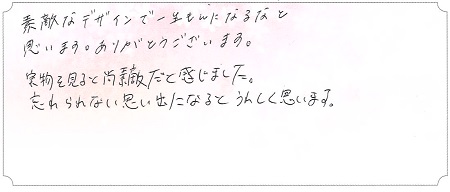 素敵なデザインで一生もんになるなと
思います。ありがとうございます。
実物を見ると尚素敵だと感じました。
忘れられない思い出になるとうれしく思います。